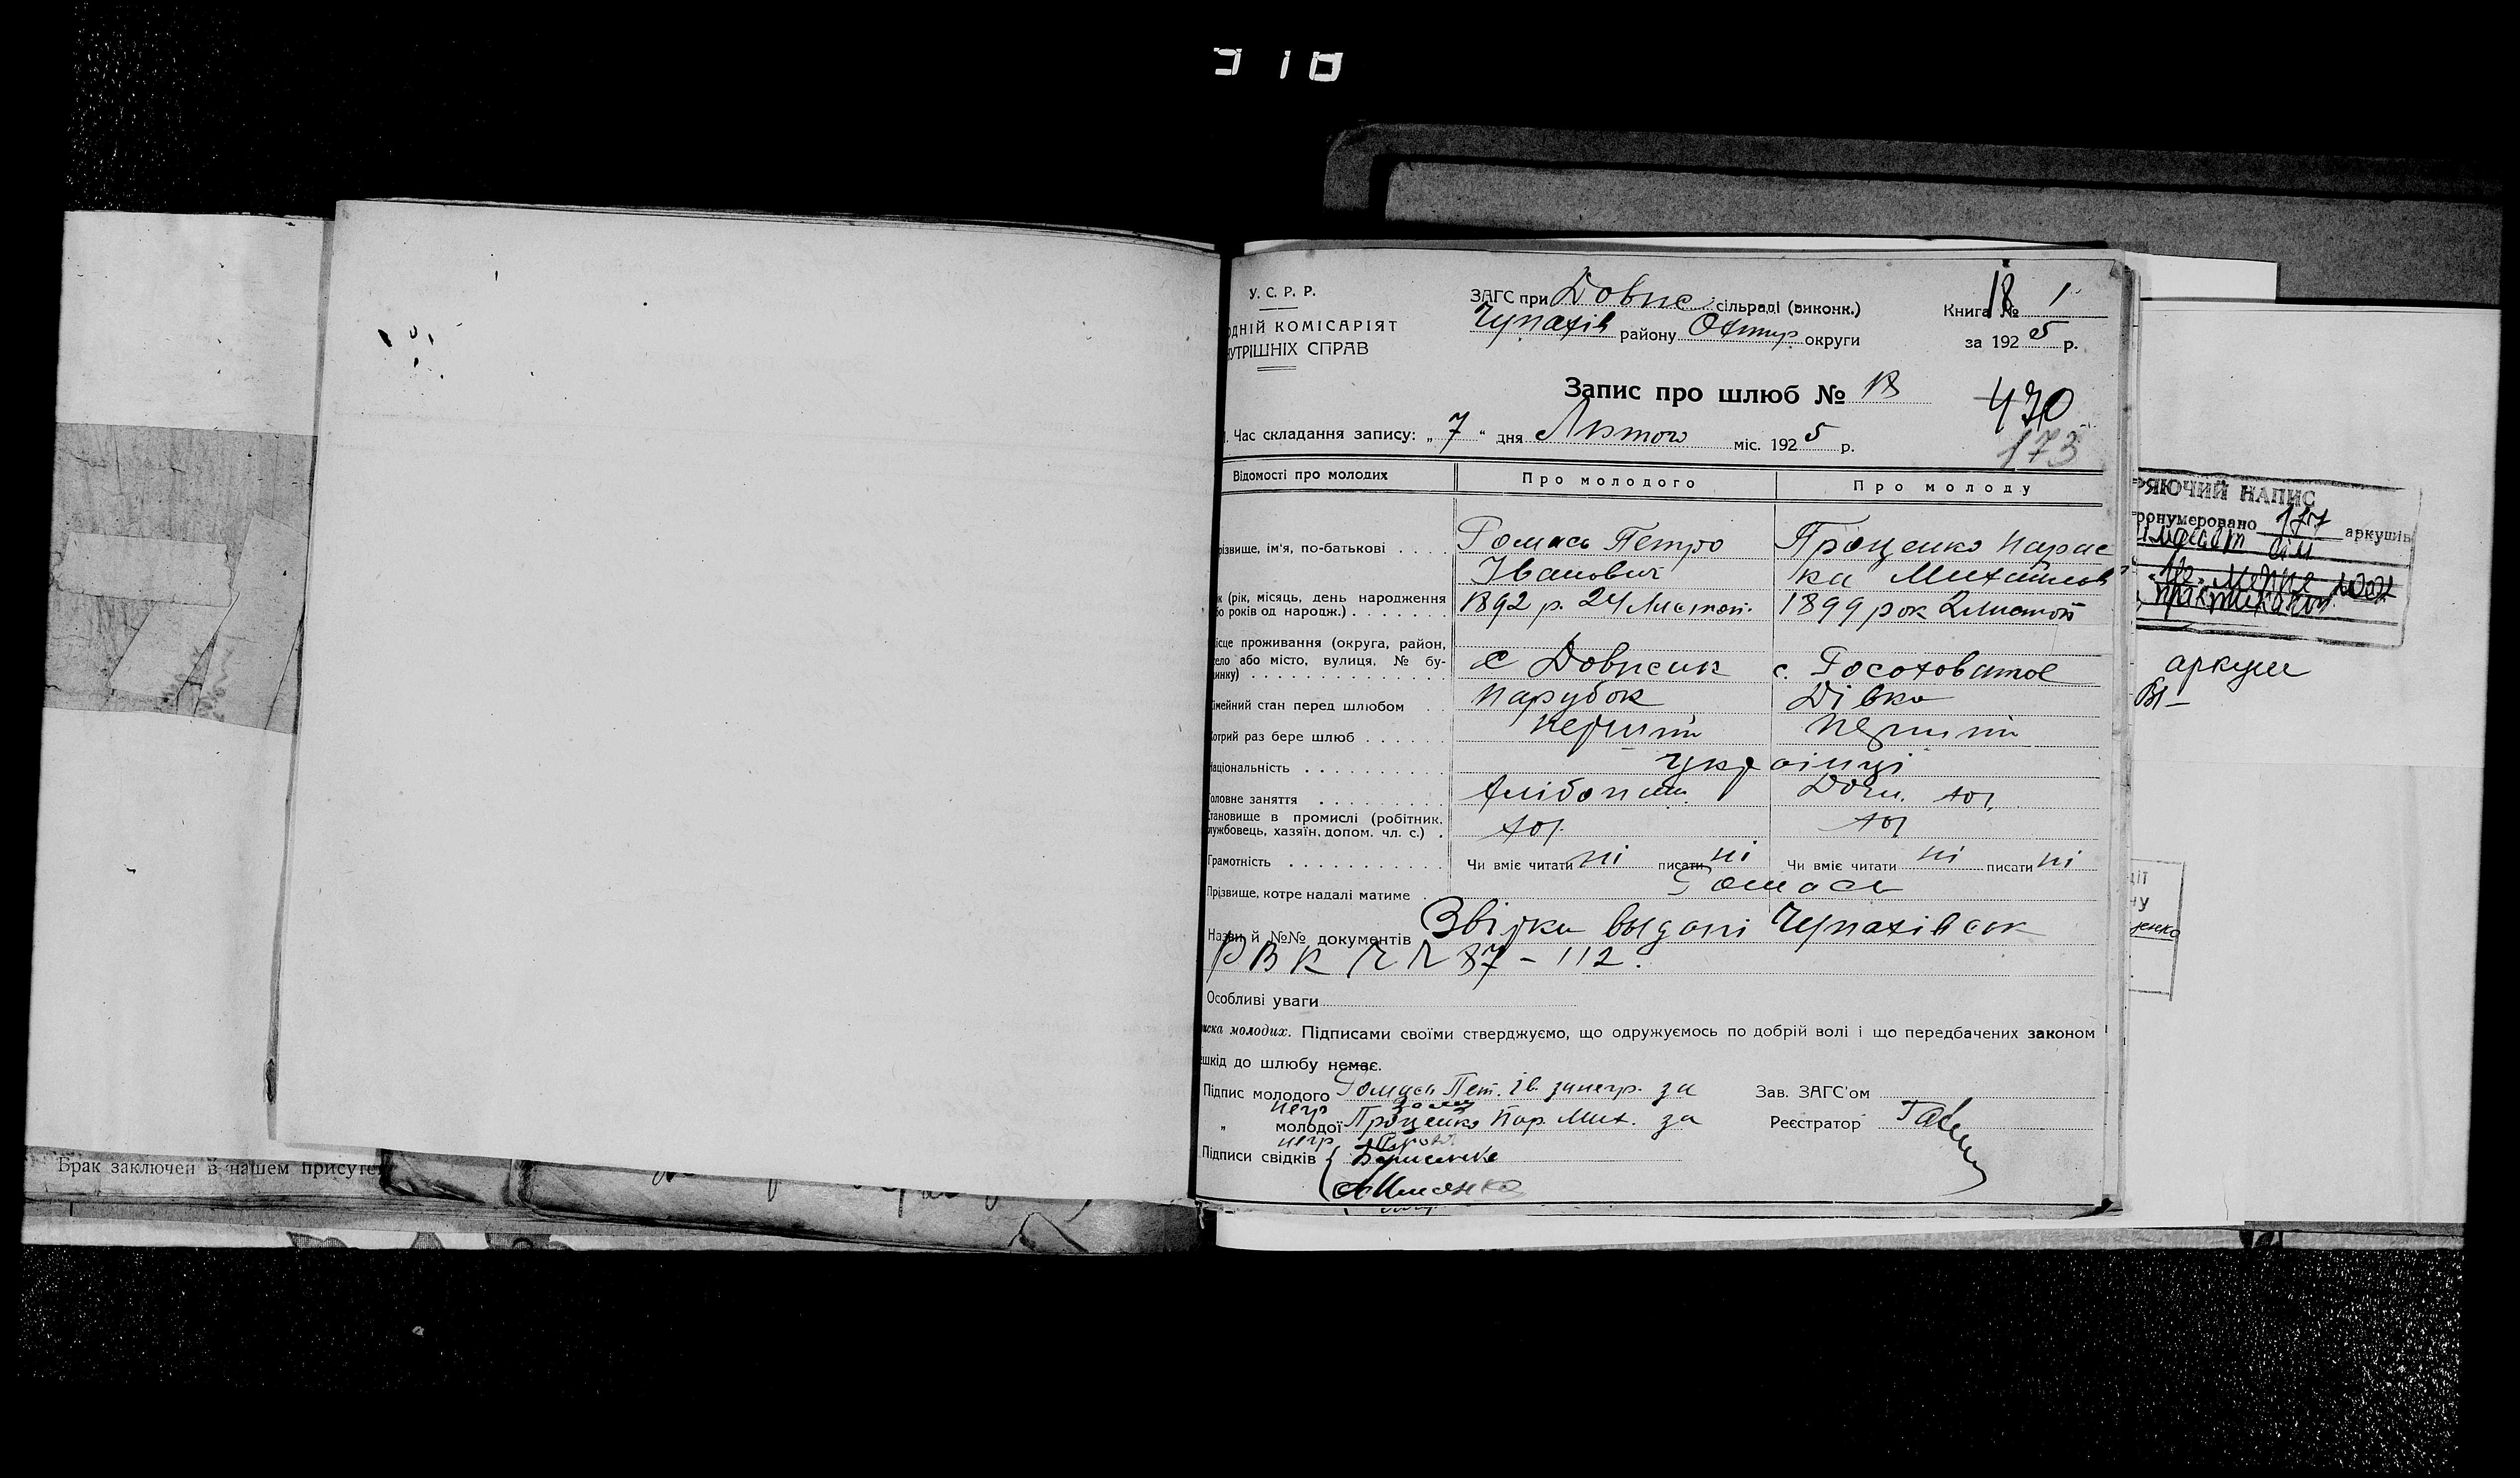 У. С. Р. Р.
ЗАГС при Довпс. сільраді (виконк.)
Книга № 1
18
ОДНІЙ КОМІСАРІЯТ
Чупахів району Охтир. округи
за 1925 р.
УТРІШНІХ СПРАВ
Запис про шлюб № 18
470
Час складання запису: „7“ дня Лютого міс. 1925 р.
173
Відомості про молодих Про молодого Про молоду
різвище, ім'я, по-батькові . . . . Ромась Петро Проценко Парас
Іванович ка Михайлов
к (рік, місяць, день народження
бо років од народж.) . . . . . . . 1892 р. 24 Листоп. 1899 рок 2 Листоп
ісце проживання (округа, район,
ело або місто, вулиця, № бу-
инку) . . . . . . . . . . . . . . с Довпсик с. Росоховатое
імейний стан перед шлюбом . . парубок Дівка
отрий раз бере шлюб . . . . . . перший перший
аціональність . . . . . . . . . . українці
оловне заняття . . . . . . . . . хлібороп Дом. хоз.
тановище в промислі (робітник,
лужбовець, хазяїн, допом. чл. с.) . хоз. хоз
Грамотність . . . . . . . . . . . Чи вміє читати ні писати ні Чи вміє читати ні писати ні
Прізвище, котре надалі матиме . Ромась
Назви й №№ документів Звідки выдані Чупахівськ
РВК № № 87 – 112.
Особливі уваги
иска молодих. Підписами своїми стверджуємо, що одружуємось по добрій волі і що передбачених законом
ешкід до шлюбу немає.
Підпис молодого Ромась Пет. Ів. за
Зав. ЗАГС'ом
„ молодої Проценко Пар. Мих. за
Реєстратор
Підписи свідків
РЯЮЧИЙ НАПИС
ронумеровано 177 аркушів
аркуш
Брак заключен в нашем присутс